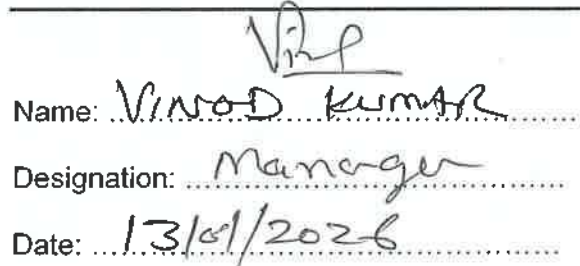 Name: VINOD KUMAR
Designation: Manager
Date: 13/01/2026